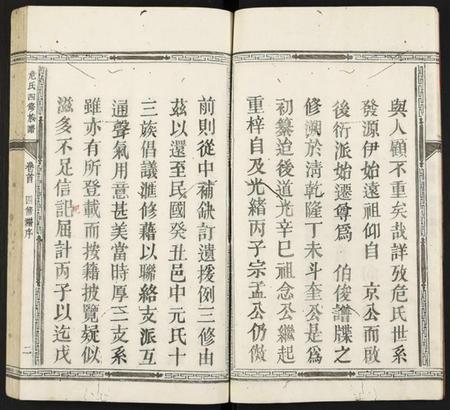 與人顧不重矣哉詳攷危氏世系
發源伊始遠祖仰自 京公而啟
後衍派始遷尊爲 伯俊譜牒之
修溯於清乾隆丁未斗奎公是爲
初纂迨後道光辛巳祖念公繼起
重梓自及光緒丙子宗孟公仍倣
前則從中補缺訂遺援例三修由
茲以還至民國癸丑邑中元氏十
三族倡議滙修藉以聯絡支派互
通聲氣用意甚美當時厚二支系
雖亦有所登載而按籍披覽疑似
滋多不足信記屈計丙子以迄戊
危氏四修族譜
卷首
四修譜序
二